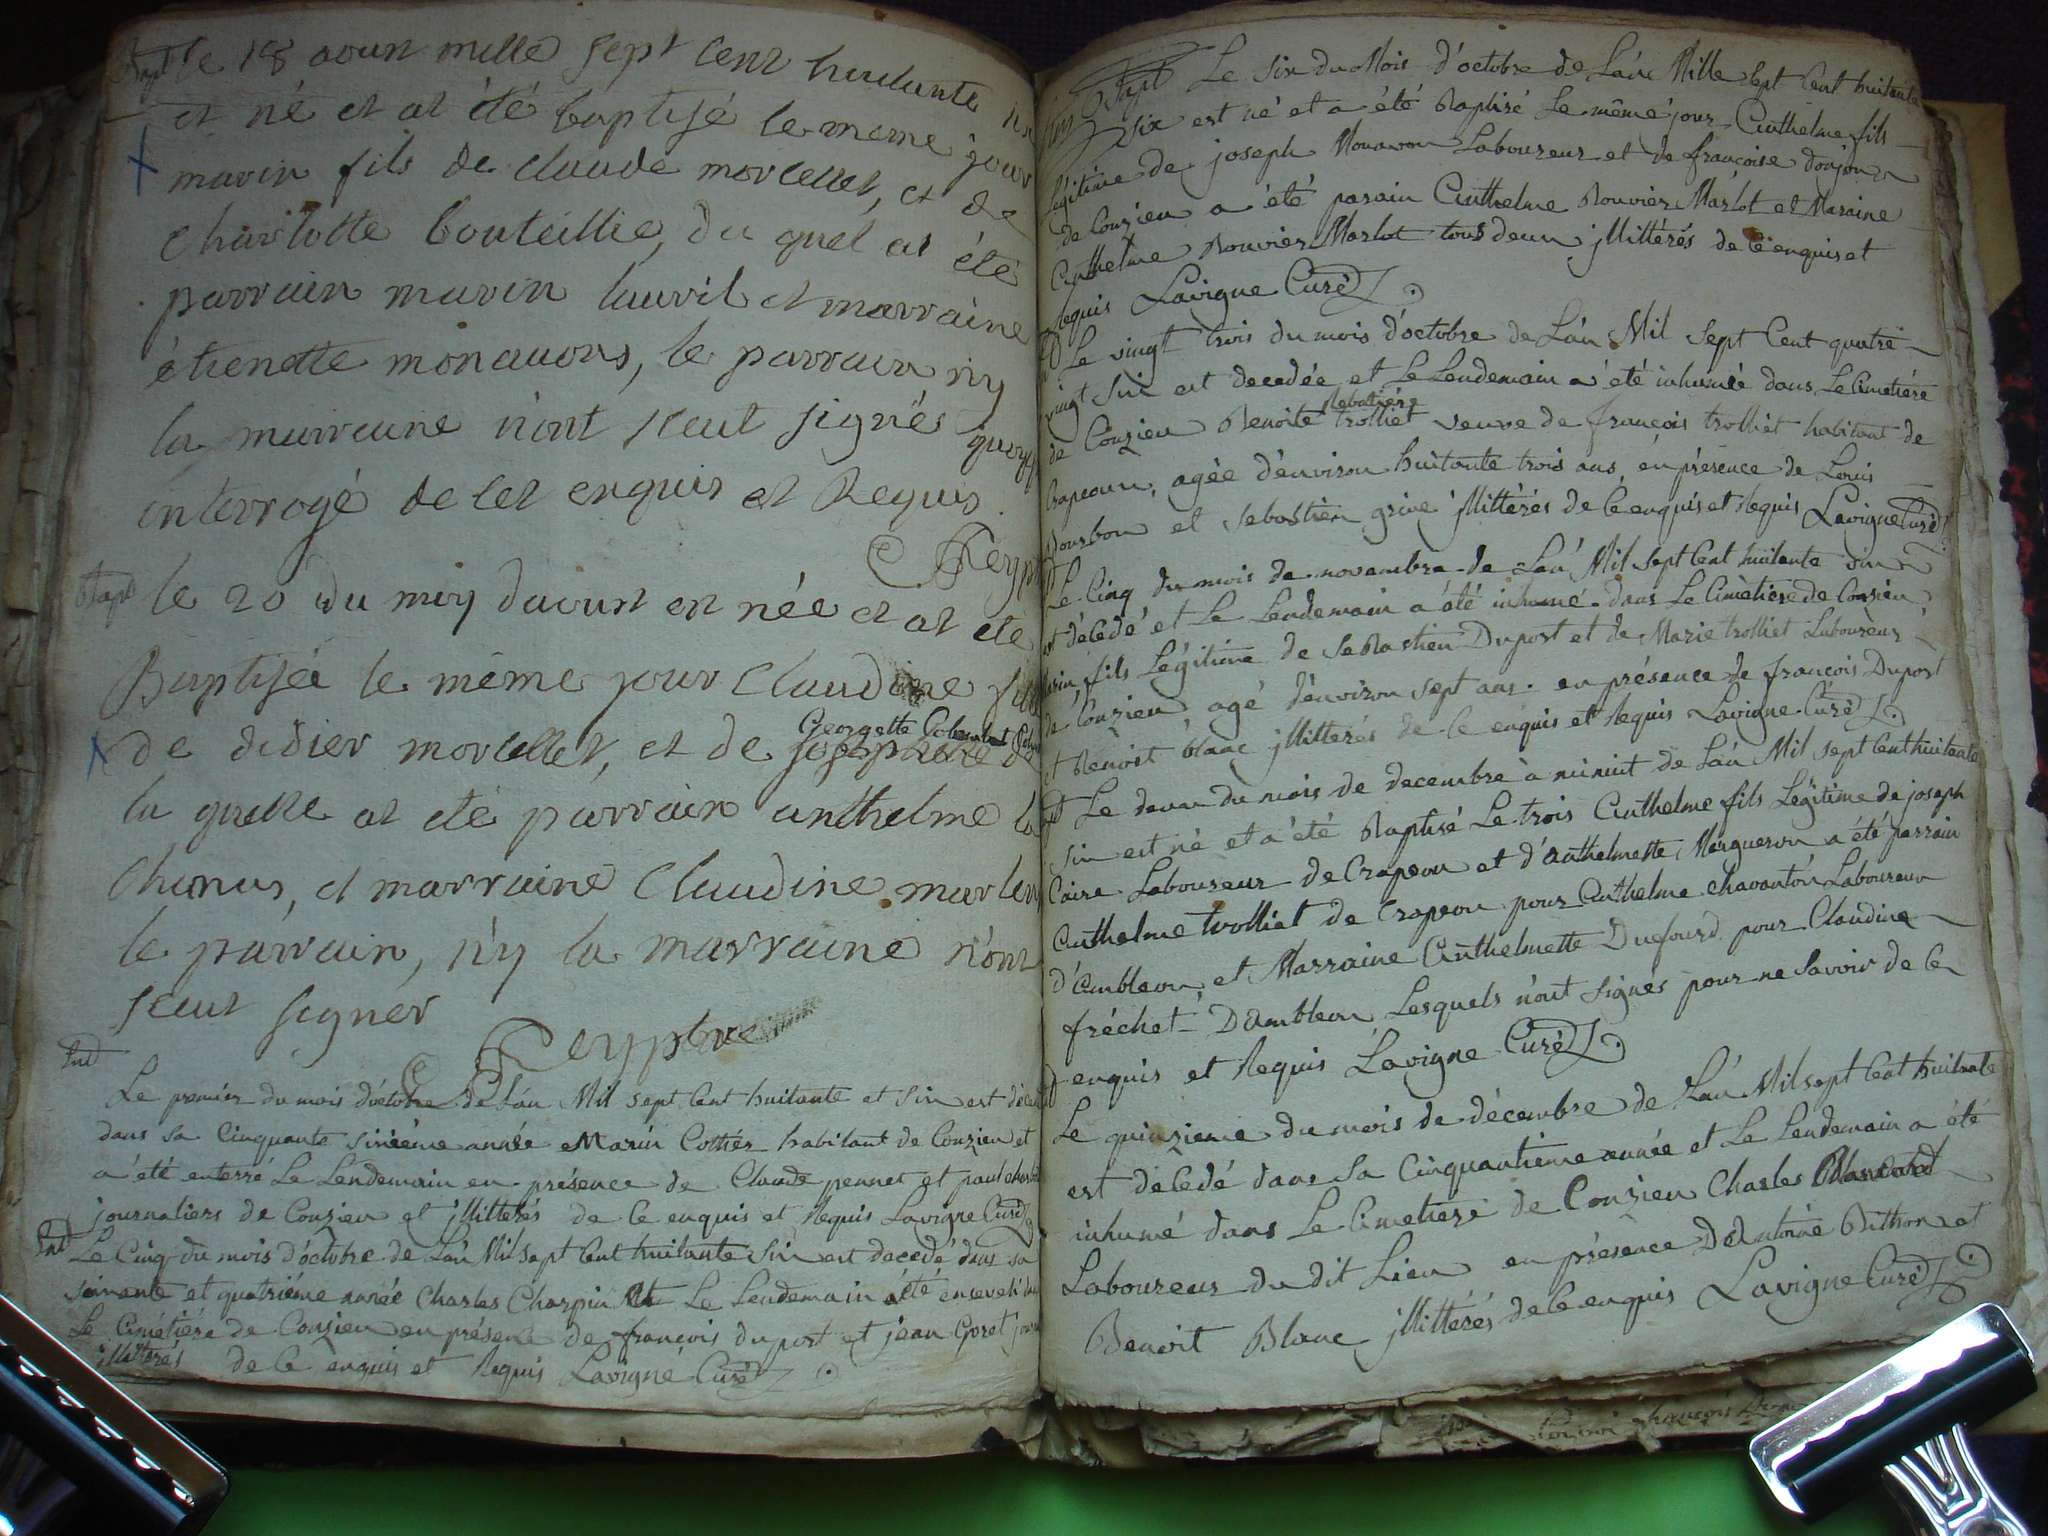 Bapt le 18 aoust mille sept cent huitante
et né et at été baptisé le meme jour
marin fils de claude morcellet, et de
charlotte bouteillie, du quel at été
parrain marin lauvil et marraine
étienette monavons, le parrain n'y
la marraine n'ont sceut signés
interrogé de cet enquis et Requis
le 20 du moy daoust et née et at eté
Baptisée le même jour Claudine fille
Georgette
de didier morcellet, et de josephette
la quelle at eté parrain anthelme
et marraine Claudine
le parrain, n'y la marraine n'ont
sceut signér
Le premier du mois d'octobre de L'an Mil sept Cent huitante et six est
dans sa Cinquante sixiéme année Marin Cottier habitant de Conzieu et
a été enterré Le Lendemain en présence de Claude pennet et paul
journaliers de Conzieu et jllitterés de Ce enquis et Requis Lavigne Curé
Le Cinq du mois d'octobre de L'an Mil sept Cent huitante six est decedé dans sa
soixante et quatriéme année Charles Charpin et Le Lendemain a été enseveli
Le Cimétiére de Conzieu en présence de françois du port et jean Goret
jllitterés de Ce enquis et Requis Lavigne Curé
Bapt Le six du Mois d'octobre de L'an Mille Sept Cent huitante
six est né et a été Baptisé Le même jour Anthelme fils
Légitime de joseph Monavon Laboureur et de françoise donjon
de Conzieu a été parain Anthelme Bouvier Marlot et Maraine
Anthelme Bouvier Marlot tous deux jllittérés de Ce enquis et
Requis Lavigne Curé
Le vingt trois du mois d'octobre de L'an Mil sept Cent quatre
vingt six est decedée et Le Lendemain a été inhumée dans Le Cimetiére
de Conzieu Benoite trolliet veuve de françois trolliet habitant de
Crapeoux, agée d'environ huitante trois ans, en présence de Louis
Bourbon et Sebastien grine jllittérés de Ce enquis et Requis Lavigne Curé
Le Cinq du mois de novembre de L'an Mil sept Cent huitante six
est décedé et Le Lendemain a été inhumé dans Le Cimètiére de Conzieu
Marin, fils Légitime de Sebastien Duport et de Marie trolliet Laboureur
de Conzieu agé d'environ sept ans en présence de françois Duport
et Benoist blanc jllitterés de Ce enquis et Requis Lavigne Curé
Le deux du mois de decembre à minuit de L'an Mil sept Cent huitante
six est né et a été Baptisé Le trois Anthelme fils Légitime de joseph
Caire Laboureur de Crapeou et d'Anthelmette Margueron a été parrain
Anthelme trolliet de Crapeou pour Anthelme chavanton Laboureur
d'Ambleon et Marraine Anthelmette Dufourd pour Claudine
fréchet D'ambleon Lesquels n'ont signés pour ne Savoir de Ce
enquis et Requis Lavigne Curé
Le quinzieme du mois de décembre de L'an Mil sept Cent huitante
est décedé dans Sa Cinquantieme année et Le Lendemain a été
inhumé dans Le Cimetiére de Conzieu Charles
Laboureur du dit Lieu en présence D'Antoine Bithon et
Benoit Blanc jllittérés de Ce enquis Lavigne Curé